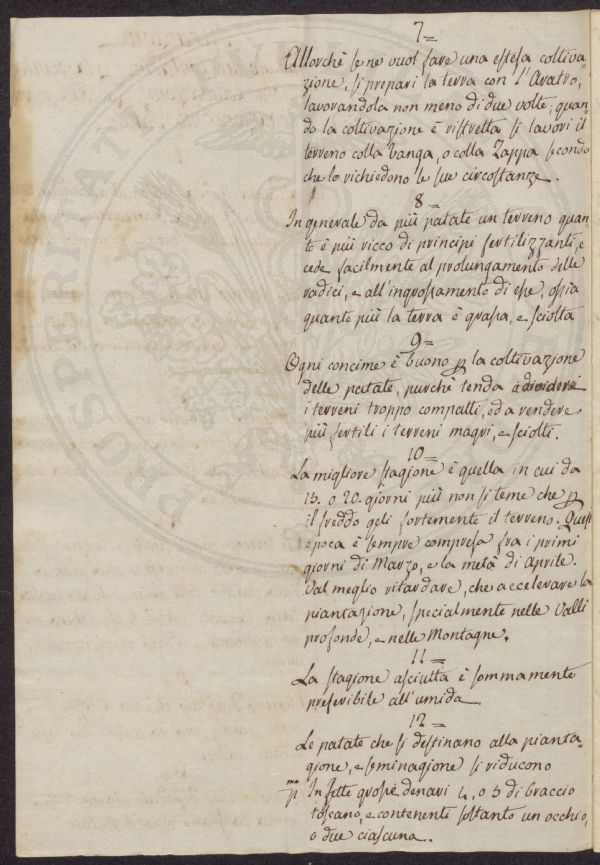 7=
Allorchè se ne vuol fare una estesa coltiva-
zione, si prepari la terra con l'Aratro,
lavorandola non meno di due volte; quan-
do la coltivazione è ristretta si lavori il
terreno colla Vanga, o colla Zappa secondo
che lo richiedono le sue circostanze.
8=
In generale da più patate un terreno quan-
to è più ricco di principi fertilizzanti, e
cede facilmente al prolungamento delle
radici, e all'ingrossamento di esse, ossia
quanto più la terra è grassa, e sciolta
9=
Ogni concime è buono p la coltivazione
delle patate, purchè tenda a dividere
i terreni troppo compatti, ed a rendere
più fertili i terreni magri, e sciolti.
10=
La migliore stagione è quella in cui da
15. o 20. giorni più non si teme che p
il freddo geli fortemente il terreno. Quest
epoca è sempre compresa fra i primi
giorni di Marzo, e la metà di Aprile.
Val meglio ritardare, che accelerare la
piantazione, specialmente nelle Valli
profonde, e nelle Montagne.
11=
La stagione asciutta è sommamente
preferibile all'umida.
12=
Le patate che si destinano alla pianta-
gione, e seminagione si riducono
p.mo In fette grosse denari 4, o 5 di braccio
toscano, e contenenti soltanto un occhio,
o due ciascuna.
PROSPERITATI